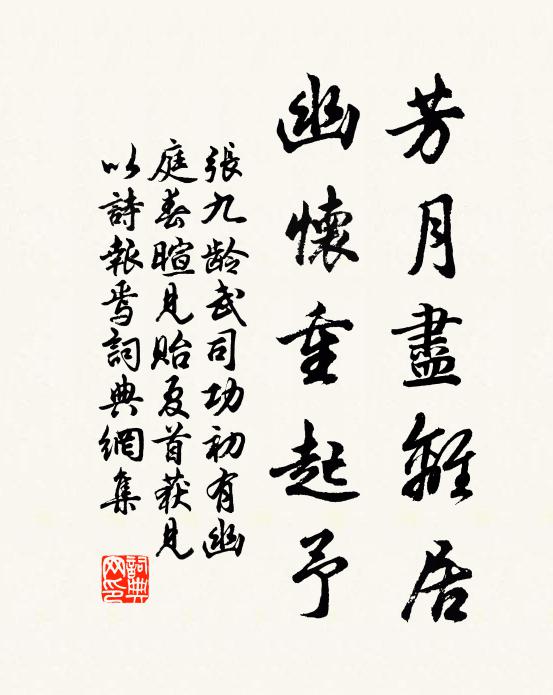 芳月盡離居
幽懷重起予
張九齡武司功初有幽
庭春暄見貽夏首获見
以詩報焉詞典網集
詞典网印